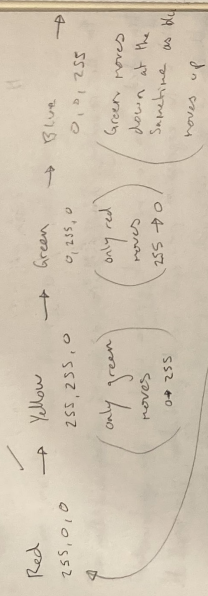 Red → Yellow → Green → Blue →
255,0,0 255,255,0 0,255,0 0,0,255
(only green
moves
0→255)
(only red
moves
255→0)
(Green moves
down at the
Sametime as blu
moves up